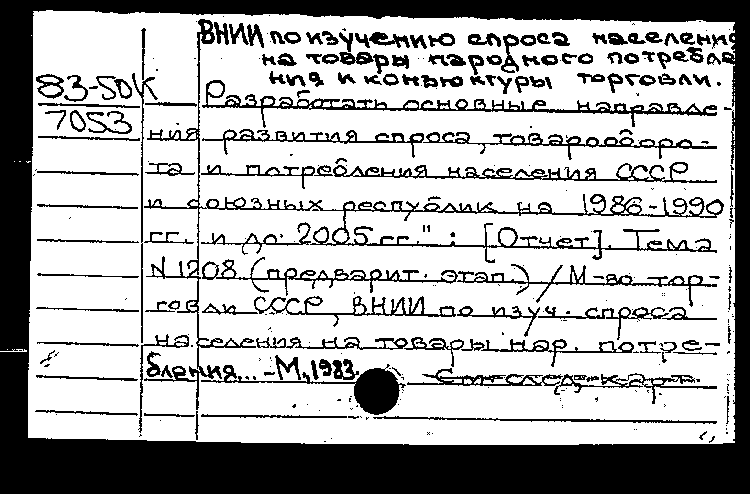 ВНИИ по изучению спроса населения
на товары народного потребле
ния и конъюктуры торговли.
83-50К
Разработать основные направле-
7053
ния развития спроса, товарооборо-
та и потребления населения СССР
и союзных республик на 1986-1990
гг. и до 2005 гг." : [Отчет]. Тема
N 1208 (предварит. этап.) / М-во тор-
говли СССР, ВНИИ по изуч. спроса
населения на товары нар. потре-
бления... -М, 1983.
См. след. карт.